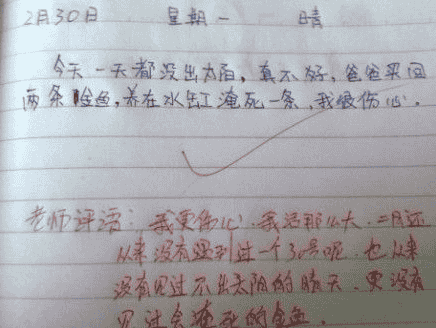 2月30日 星期一 晴
今天一天都没出太阳,真不好,爸爸买回
两条金鱼,养在水缸淹死一条,我很伤心。
老师评语:我更伤心,我活那么大,二月还
从来没有遇到过一个30号呢,也从来
没有见过不出太阳的晴天,更没有
见过会淹死的金鱼.